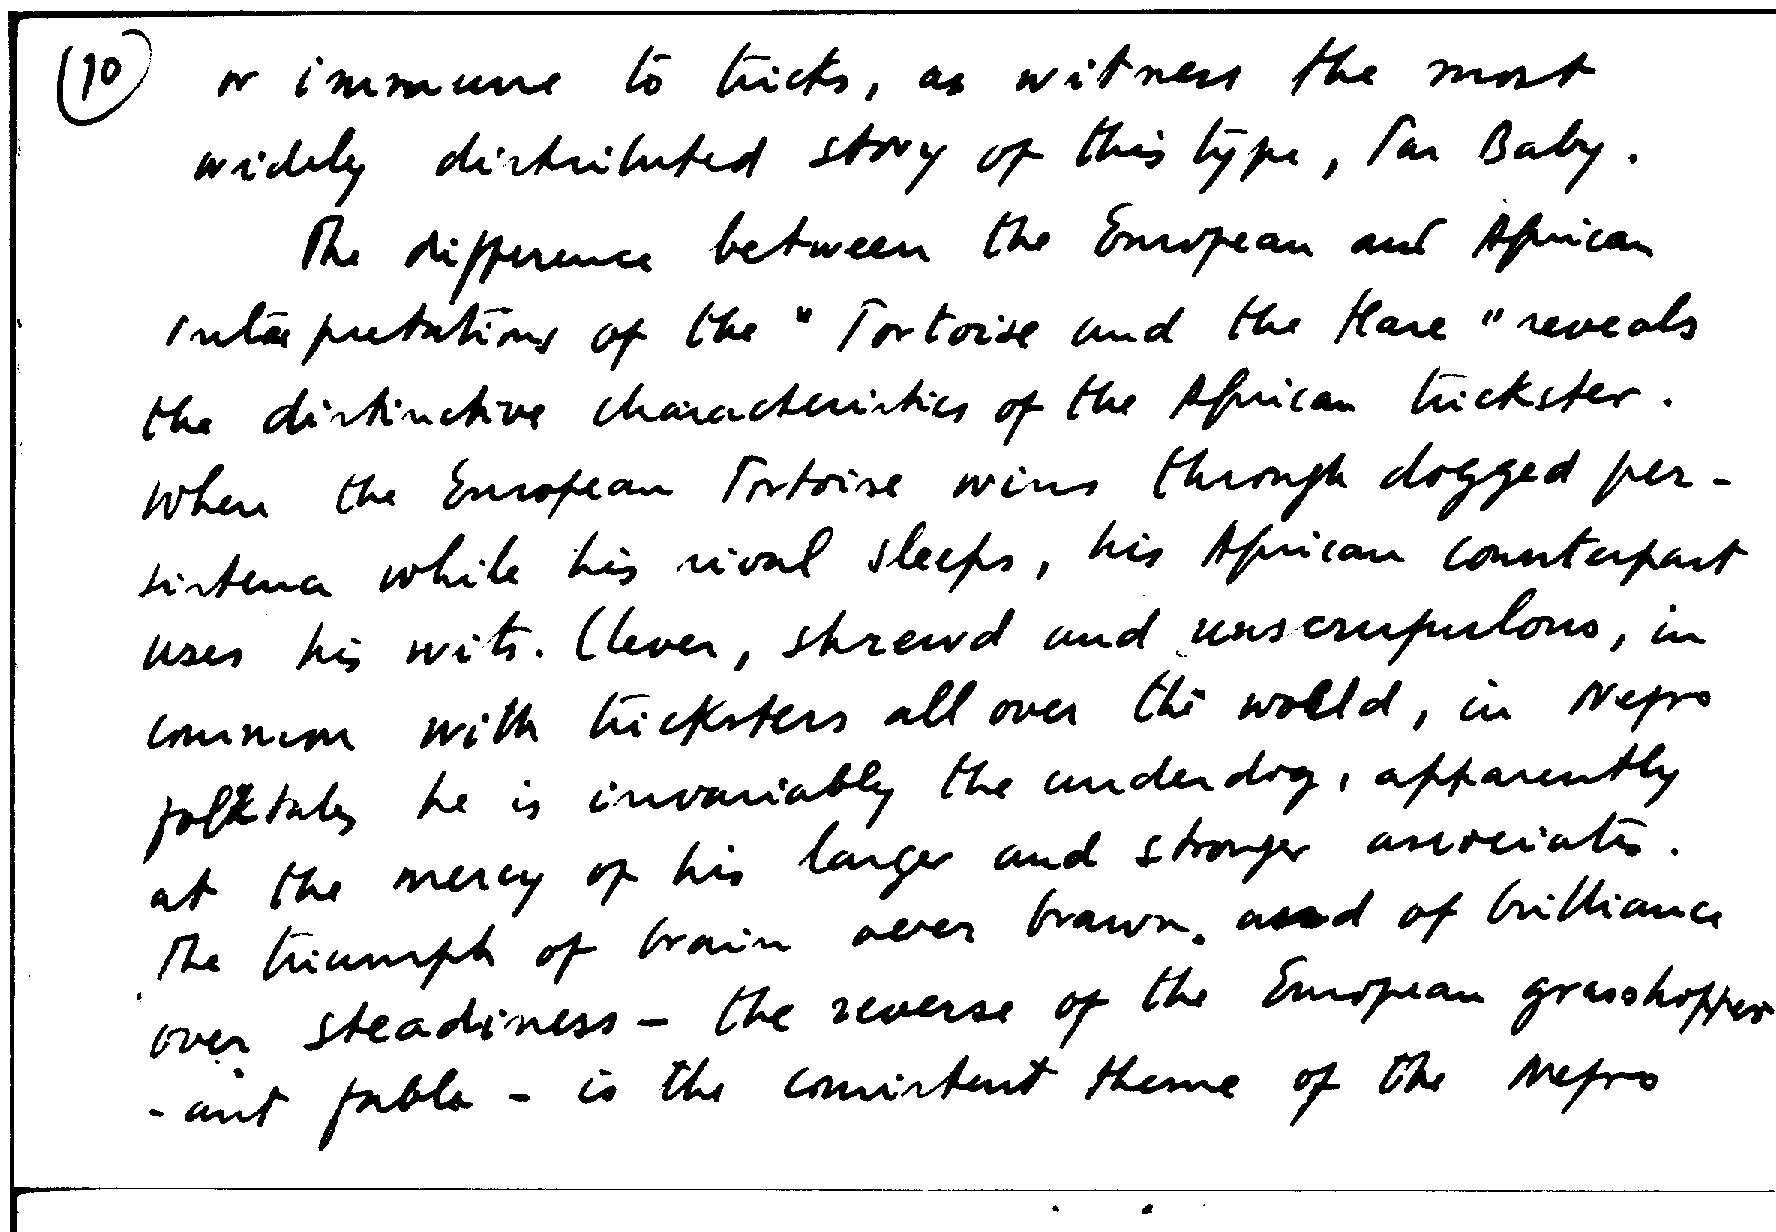 (10) or immune to tricks, as witness the most
widely distributed story of this type, Tar Baby.
The difference between the European and African
interpretations of the "Tortoise and the Hare" reveals
the distinctive characteristics of the African trickster.
When the European Tortoise wins through dogged per-
sistence while his rival sleeps, his African counterpart
uses his wits. Clever, shrewd and unscrupulous, in
common with tricksters all over the world, in Negro
folktales he is invariably the underdog, apparently
at the mercy of his larger and stronger associates.
The triumph of brain over brawn, and of brilliance
over steadiness - the reverse of the European grasshopper
-ant fable - is the consistent theme of the Negro